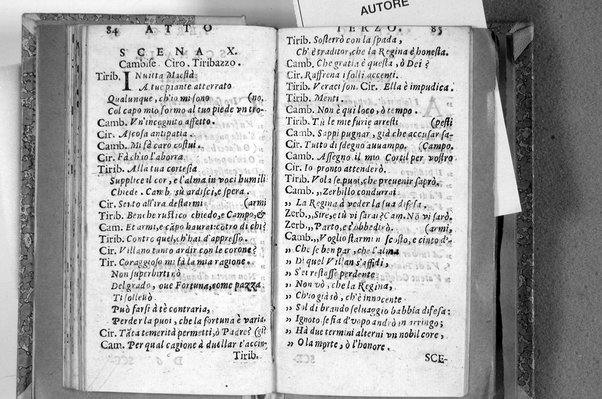 AUTORE
84 ATTO
SCENA X.
Cambise Ciro. Tiribazzo.
Tirib. INuitta Maesà
A tue piante atterrato
Qualunque, ch'io mi sono (no.
Col capo mio formo al tuo piede vn tro-
Camb. Vn'incognito affetto.
Cir. Ascosa antipatia.
Camb. Mi fà caro costui.
Cir. Fà ch'io l'aborra.
Tirib. Alla tua cortesia
Supplice il cor, e l'alma in voci humili
Chiede. Camb. Sù ardisci, e spera.
Cir. Sento all'ira destarmi (armi
Tirib. Benche rustico chiedo, e Campo, &
Cam. Et armi, e campo haurai: cotro di chi?
Tirib. Contro quei, ch'hai d'appresso.
Cir. Villano tanto ardir con le corone?
Tir. Coraggioso mi fà la mia ragione.
Non superbirti cò
Del grado, oue Fortuna, come pazza
Ti solleuò
Può farsi à te contraria,
Perder la puoi, che la fortuna è varia.
Cir. Tāta temerità permetti, ò Padre? (git
Cam. Per qual cagione à duellar t'accin-
Tirib.
TERZO. 85
Tirib. Sosterrò con la spada,
Ch'è traditor, che la Regina è honesta.
Camb. Che gratia è questa, ò Dei?
Cir. Raffrena i folli accenti.
Tirib. Veraci son. Cir. Ella è impudica.
Tirib. Menti.
Camb. Non è qui loco, ò tempo.
Tirib. Tù le mie furie arresti (pesti
Camb. Sappi pugnar, già che accusar sa-
Cir. Tutto di sdegno auuampo. (Campo.
Camb. Assegno il mio Cortil per vostro
Cir. Io pronto attenderò.
Tirib. Vola se puoi, che preuenir saprò.
Camb. ,, Zerbillo condurrai
,, La Regina à veder la sua difesa.
Zerb. ,, Sire, e tù vi sarai? Cam. Nò vi sarò.
Zerb. ,, Parto, e t'obbedirò. (armi,
Camb. ,, Voglio starmi n se osto, e cinto d'-
,, Che se ben par, che l'alma
,, Di quel Villan s'affidi,
,, S'ei restasse perdente
,, Non vò, che la Regina,
,, Ch'io già sò, ch'è innocente
,, Sol di brando seluaggio habbia difesa:
,, Ignoto se fia d'vopo andrò in arringo;
,, Hà due termini alterni vn nobil core,
,, O la morte, ò l'honore.
SCE-